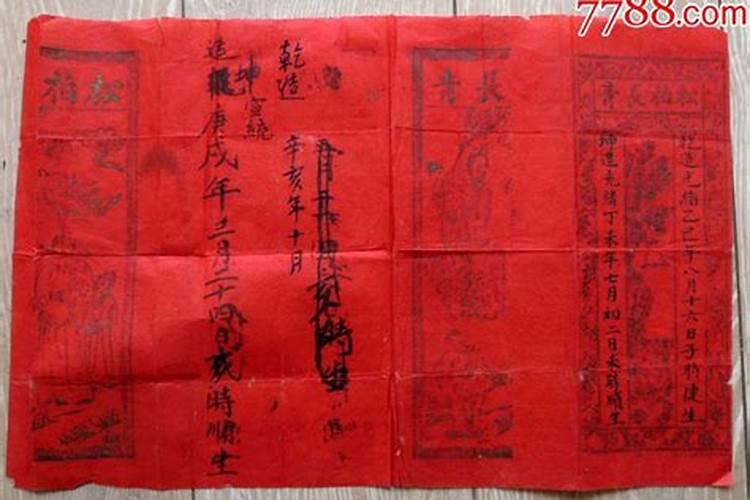 7788.com
松柏長青
乾造光緒乙巳年八月十六日子時健生
坤造光緒丁未年七月初二日未時順生
長青
乾造
辛亥年十月
時生
坤宣統
造
庚戌年三月二十四日亥時順生
松柏